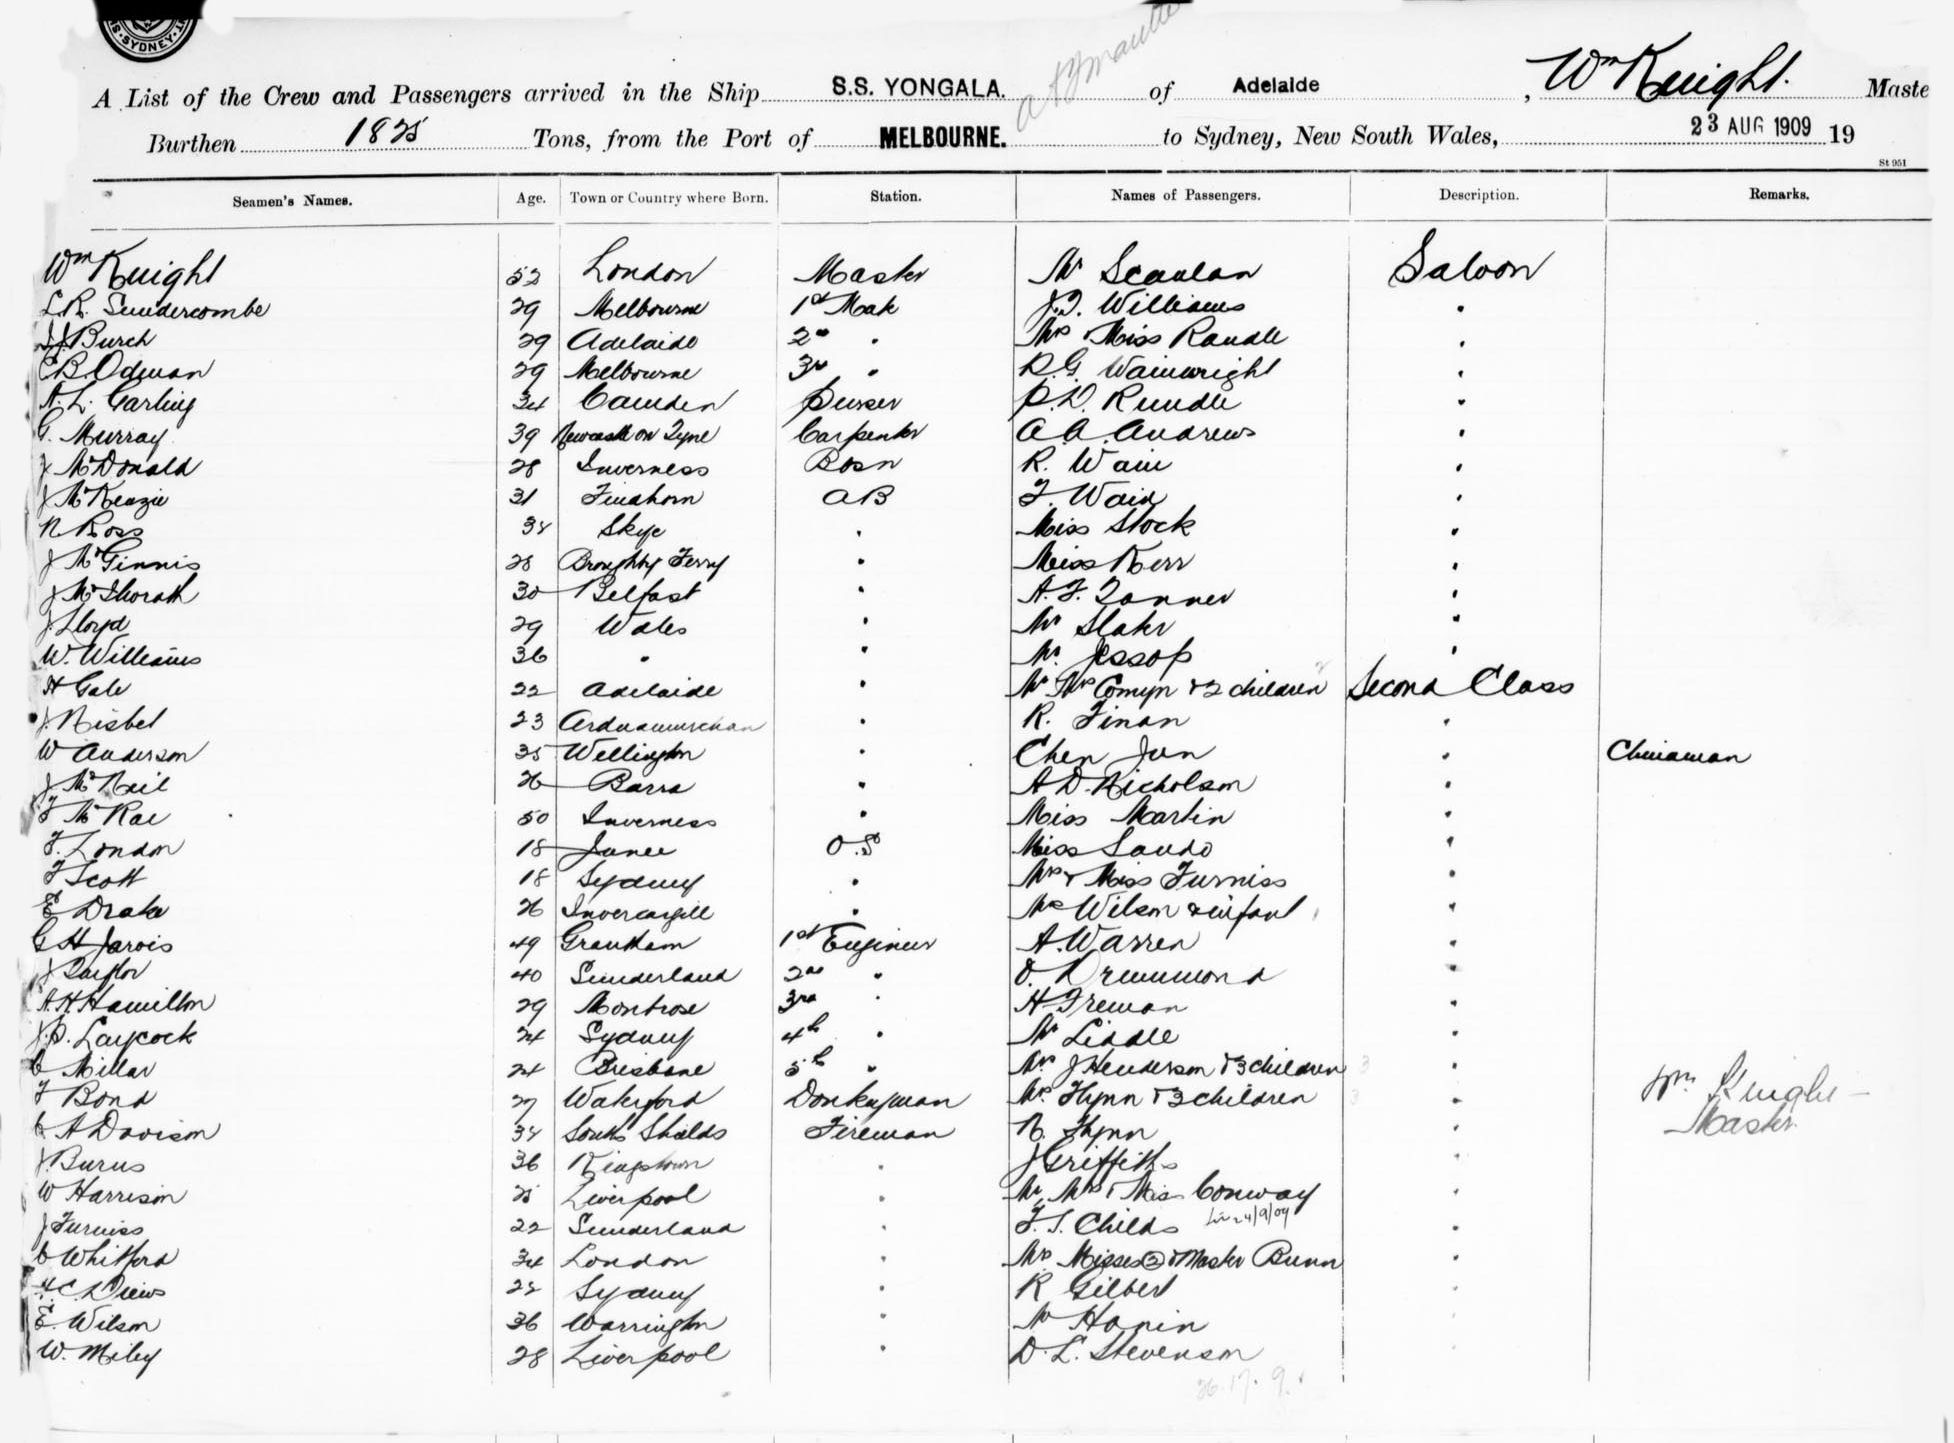 SYDNEY
A List of the Crew and Passengers arrived in the Ship S.S. YONGALA. of Adelaide, Wm Knight. Maste
Burthen 1825 Tons, from the Port of MELBOURNE. to Sydney, New South Wales, 23 AUG 1909 19
St 951
Seamen's Names. Age. Town or Country where Born. Station. Names of Passengers. Description. Remarks.
Wm Knight 52 London Master Mr Scanlan Saloon
L.R. Sundercombe 29 Melbourne 1st Mate J.J. Williams "
J.J. Burch 29 Adelaide 2nd " Mrs & Miss Randle "
C.B. Odman 29 Melbourne 3rd " R.G. Wainwright "
A. L. Garling 34 Camden Purser P.D. Rundle "
G. Murray 39 Newcastle on Tyne Carpenter A.A. Andrews "
J McDonald 28 Inverness Bosn R. Wain "
J McKenzie 31 Findhorn AB F. Wain "
N Ross 38 Skye " Miss Stock "
J McGinnis 28 Broughty Ferry " Miss Kerr "
J McIlwrath 30 Belfast " A. F. Tanner "
J. Lloyd 29 Wales " Mr Slater "
W. Williams 36 " " Mr. Jessop "
H Gale 22 Adelaide " Mr Mrs Comyn & 2 children Second Class
J. Nisbet 23 Ardnamurchan " R. Finan "
W Anderson 35 Wellington " Chen Jun " Chinaman
J McNeil 26 Barra " A D. Nicholson "
F McRae 50 Inverness " Miss Martin "
F. London 18 Junee O.S Miss Sando "
F Scott 18 Sydney " Mrs & Miss Furniss "
E Drake 26 Invercargill " Mrs Wilson & infant "
G H Jarvis 49 Grantham 1st Engineer A. Warren "
J Taylor 40 Sunderland 2nd " O. Drummond "
A.H. Hamilton 29 Montrose 3rd " H Freman "
J.P. Laycock 24 Sydney 4th " Mr Liddle "
C Millar 24 Brisbane 5th " Mrs J Henderson & 3 children 3 "
F Bond 27 Waterford Donkeyman Mrs Flynn & 3 children 3 "
Wm Knight
Master
C A Davison 34 South Shields Fireman N. Flynn "
J. Burns 36 Kingstown " J Griffiths "
W Harrison 25 Liverpool " Mr, Mrs & Miss Conway "
J Furniss 22 Sunderland " F. S. Childs 24/9/09 "
C Whitford 34 London " Mrs Misses (2) & Master Bunn "
H.C. Drews 22 Sydney " R Gilbert "
E. Wilson 36 Warrington " Mr Hanin "
W. Miley 28 Liverpool " D. L. Stevenson "
26. 17. 9.